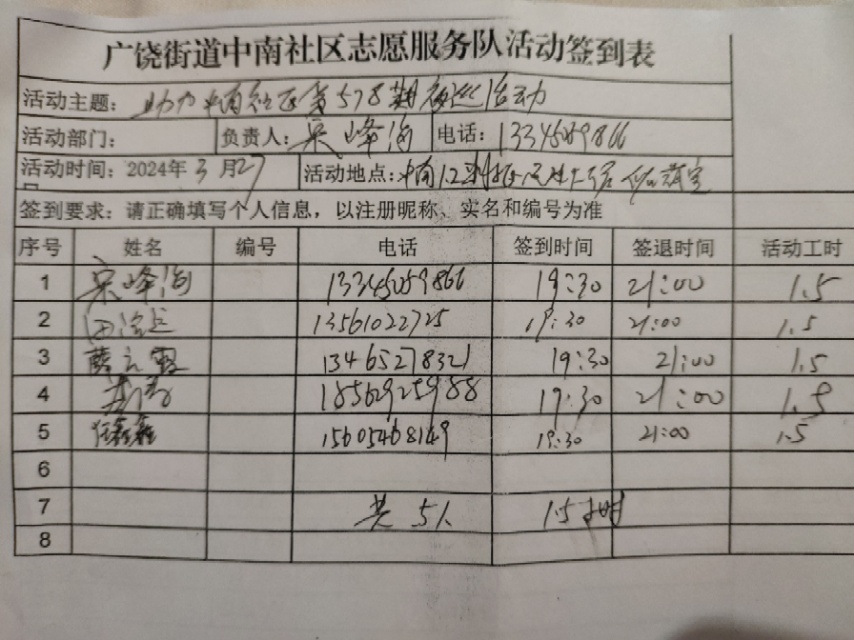 广饶街道中南社区志愿服务队活动签到表
活动主题：助力中南社区第578期夜巡活动
活动部门： 负责人： 峰海 电话：13345059866
活动时间：2024年3月27日 活动地点：中南
签到要求：请正确填写个人信息，以注册昵称、实名和编号为准
序号 姓名 编号 电话 签到时间 签退时间 活动工时
1 峰海 13345059866 19:30 21:00 1.5
2 13561022725 19:30 21:00 1.5
3 13465278321 19:30 21:00 1.5
4 18562925988 19:30 21:00 1.5
5 15605468149 19:30 21:00 1.5
6
7 共5人 1.5小时
8